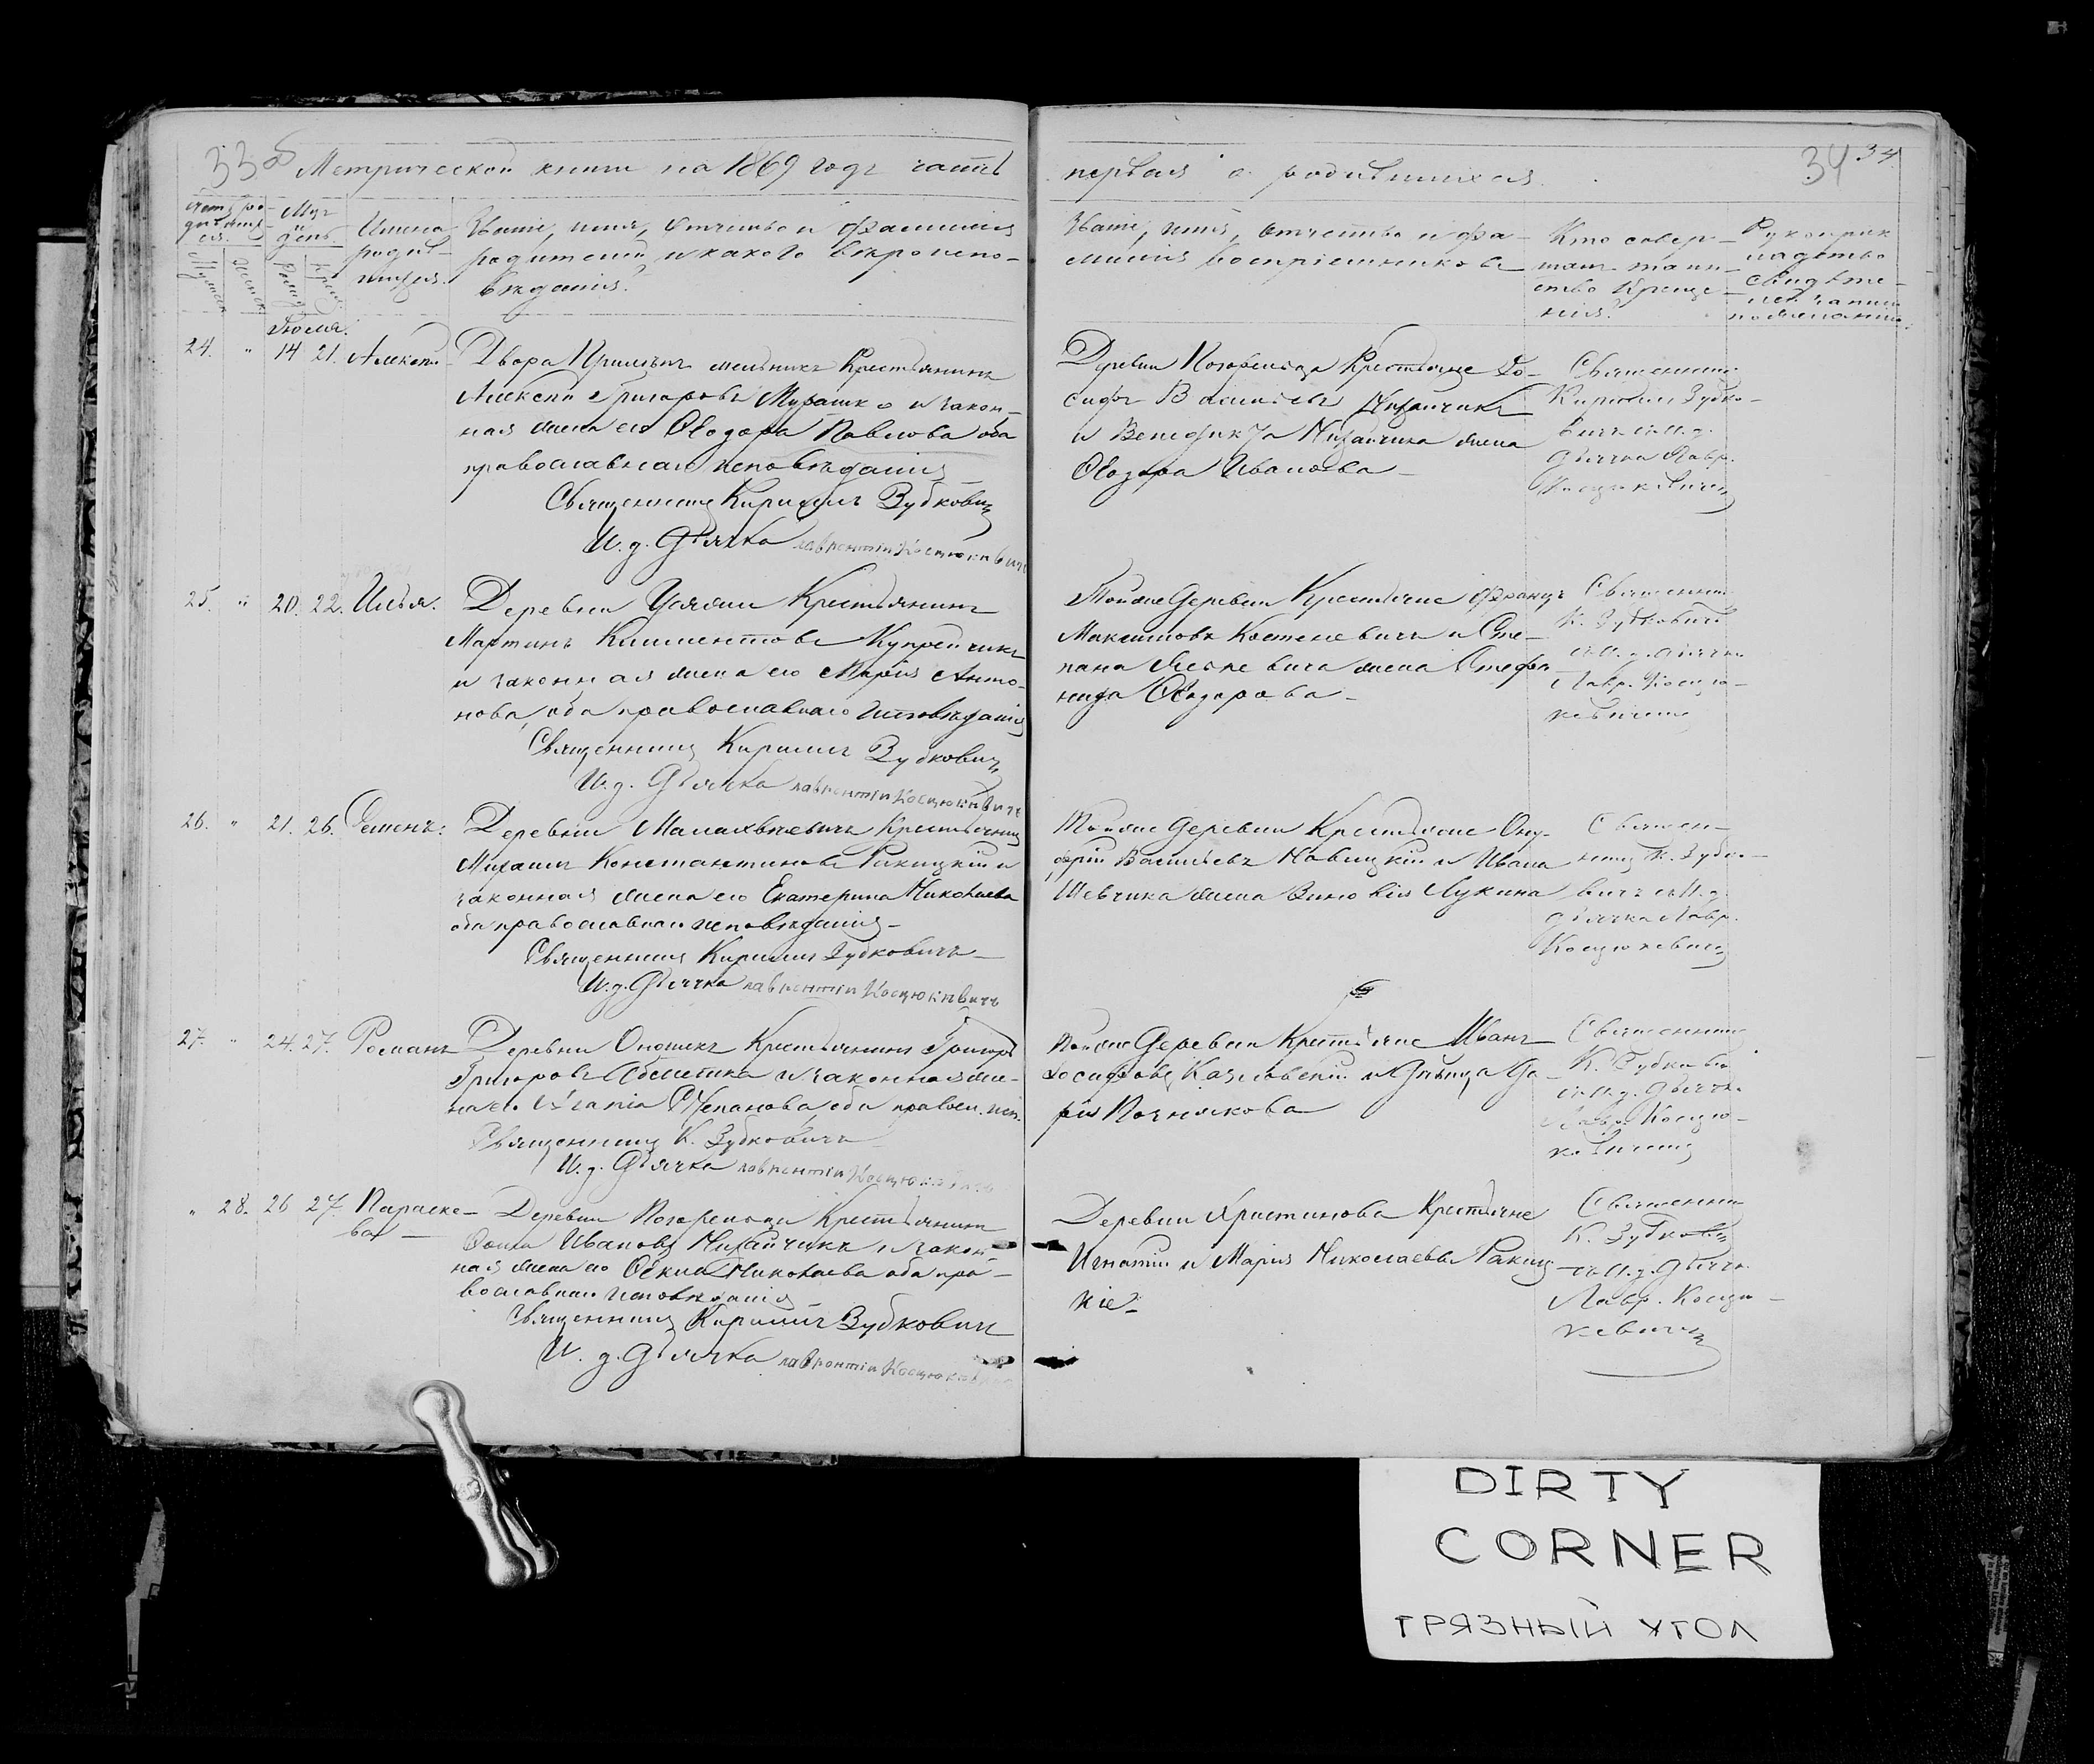 33 об Метрической книги на 1869 годъ часть
первая о родившихся.
34 34
Счетъ ро-
дивших-
ся.
Мѣс.
и
день.
Имена
родив-
шихся.
Званіе, имя, отчество и фамилія
родителей и какого вѣроиспо-
вѣданія?
Мужеск
Женск
Рожд
Крещ
Званіе, имя, отчество и фа-
милія воспріемниковъ
Кто совер-
шалъ таин-
ство Креще-
нія?
Рукоприк
ладство
свидѣте-
лей записи
по желанію.
Іюля.
24. " 14 21. Алексѣй
Двора мельникъ Крестьянинъ
Алексѣй Григорьевъ Мурашко и закон-
ная жена его Ѳеодора Павлова оба
православнаго исповѣданія
Священникъ Кириллъ Зубковичъ
И. д. Дьячка Лаврентій Косцюкевичъ
Деревни Крестьяне Іо-
сифъ Васильевъ
и жена
Ѳеодора Иванова
Священникъ
Кириллъ Зубко-
вичъ съ и. д.
дьячка Лавр.
Косцюкевичемъ
25. " 20. 22. Илья.
Деревни Крестьянинъ
Мартинъ Климентовъ Купрейчикъ
и законная жена его Марія Анто-
нова, оба православнаго исповѣданія
Священникъ Кириллъ Зубковичъ
И. д. Дьячка Лаврентій Косцюкевичъ
Тойже Деревни Крестьяне Францъ
Максимовъ Костеневичъ и Сте-
пана жена Стефа-
нида Ѳеодорова
Священникъ
К. Зубковичъ
съ и. д. дьячка
Лавр. Косцю-
кевичемъ
26. " 21. 26. Семенъ.
Деревни Крестьянинъ
Михаилъ Константиновъ Ракицкій и
законная жена его Екатерина Николаева
оба православнаго исповѣданія
Священникъ Кириллъ Зубковичъ
И. д. Дьячка Лаврентій Косцюкевичъ
Тойже Деревни Крестьяне Ону-
фрій Васильевъ Навицкій и Ивана
Шевчика жена Зиновія Лукина
Священ-
никъ К. Зубко-
вичъ съ И. д.
дьячка Лавр.
Косцюкевичемъ
27. " 24. 27. Романъ
Деревни Крестьянинъ Григорій
Григоровъ и законная же-
на его Степанова, оба правосл. исп.
Священникъ К. Зубковичъ
И. д. Дьячка Лаврентій Косцюкевичъ
Тойже Деревни Крестьяне Иванъ
Іосифовъ Казловскій и
Познякова
Священникъ
К. Зубковичъ
съ и. д. дьячка
Лавр. Косцю-
кевичемъ
" 28. 26 27. Параске-
ва
Деревни Крестьянинъ
Ѳома Ивановъ и закон-
ная жена его Николаева оба пра-
вославнаго исповѣданія
Священникъ Кириллъ Зубковичъ
И. д. Дьячка Лаврентій Косцюкевичъ
Деревни Христинова Крестьяне
Игнатій и Марія Николаевы Ракиц-
кіе
Священникъ
К. Зубковичъ
съ И. д. Дьячка
Лавр. Косцю-
кевичемъ
DIRTY
CORNER
ГРЯЗНЫЙ УГОЛ